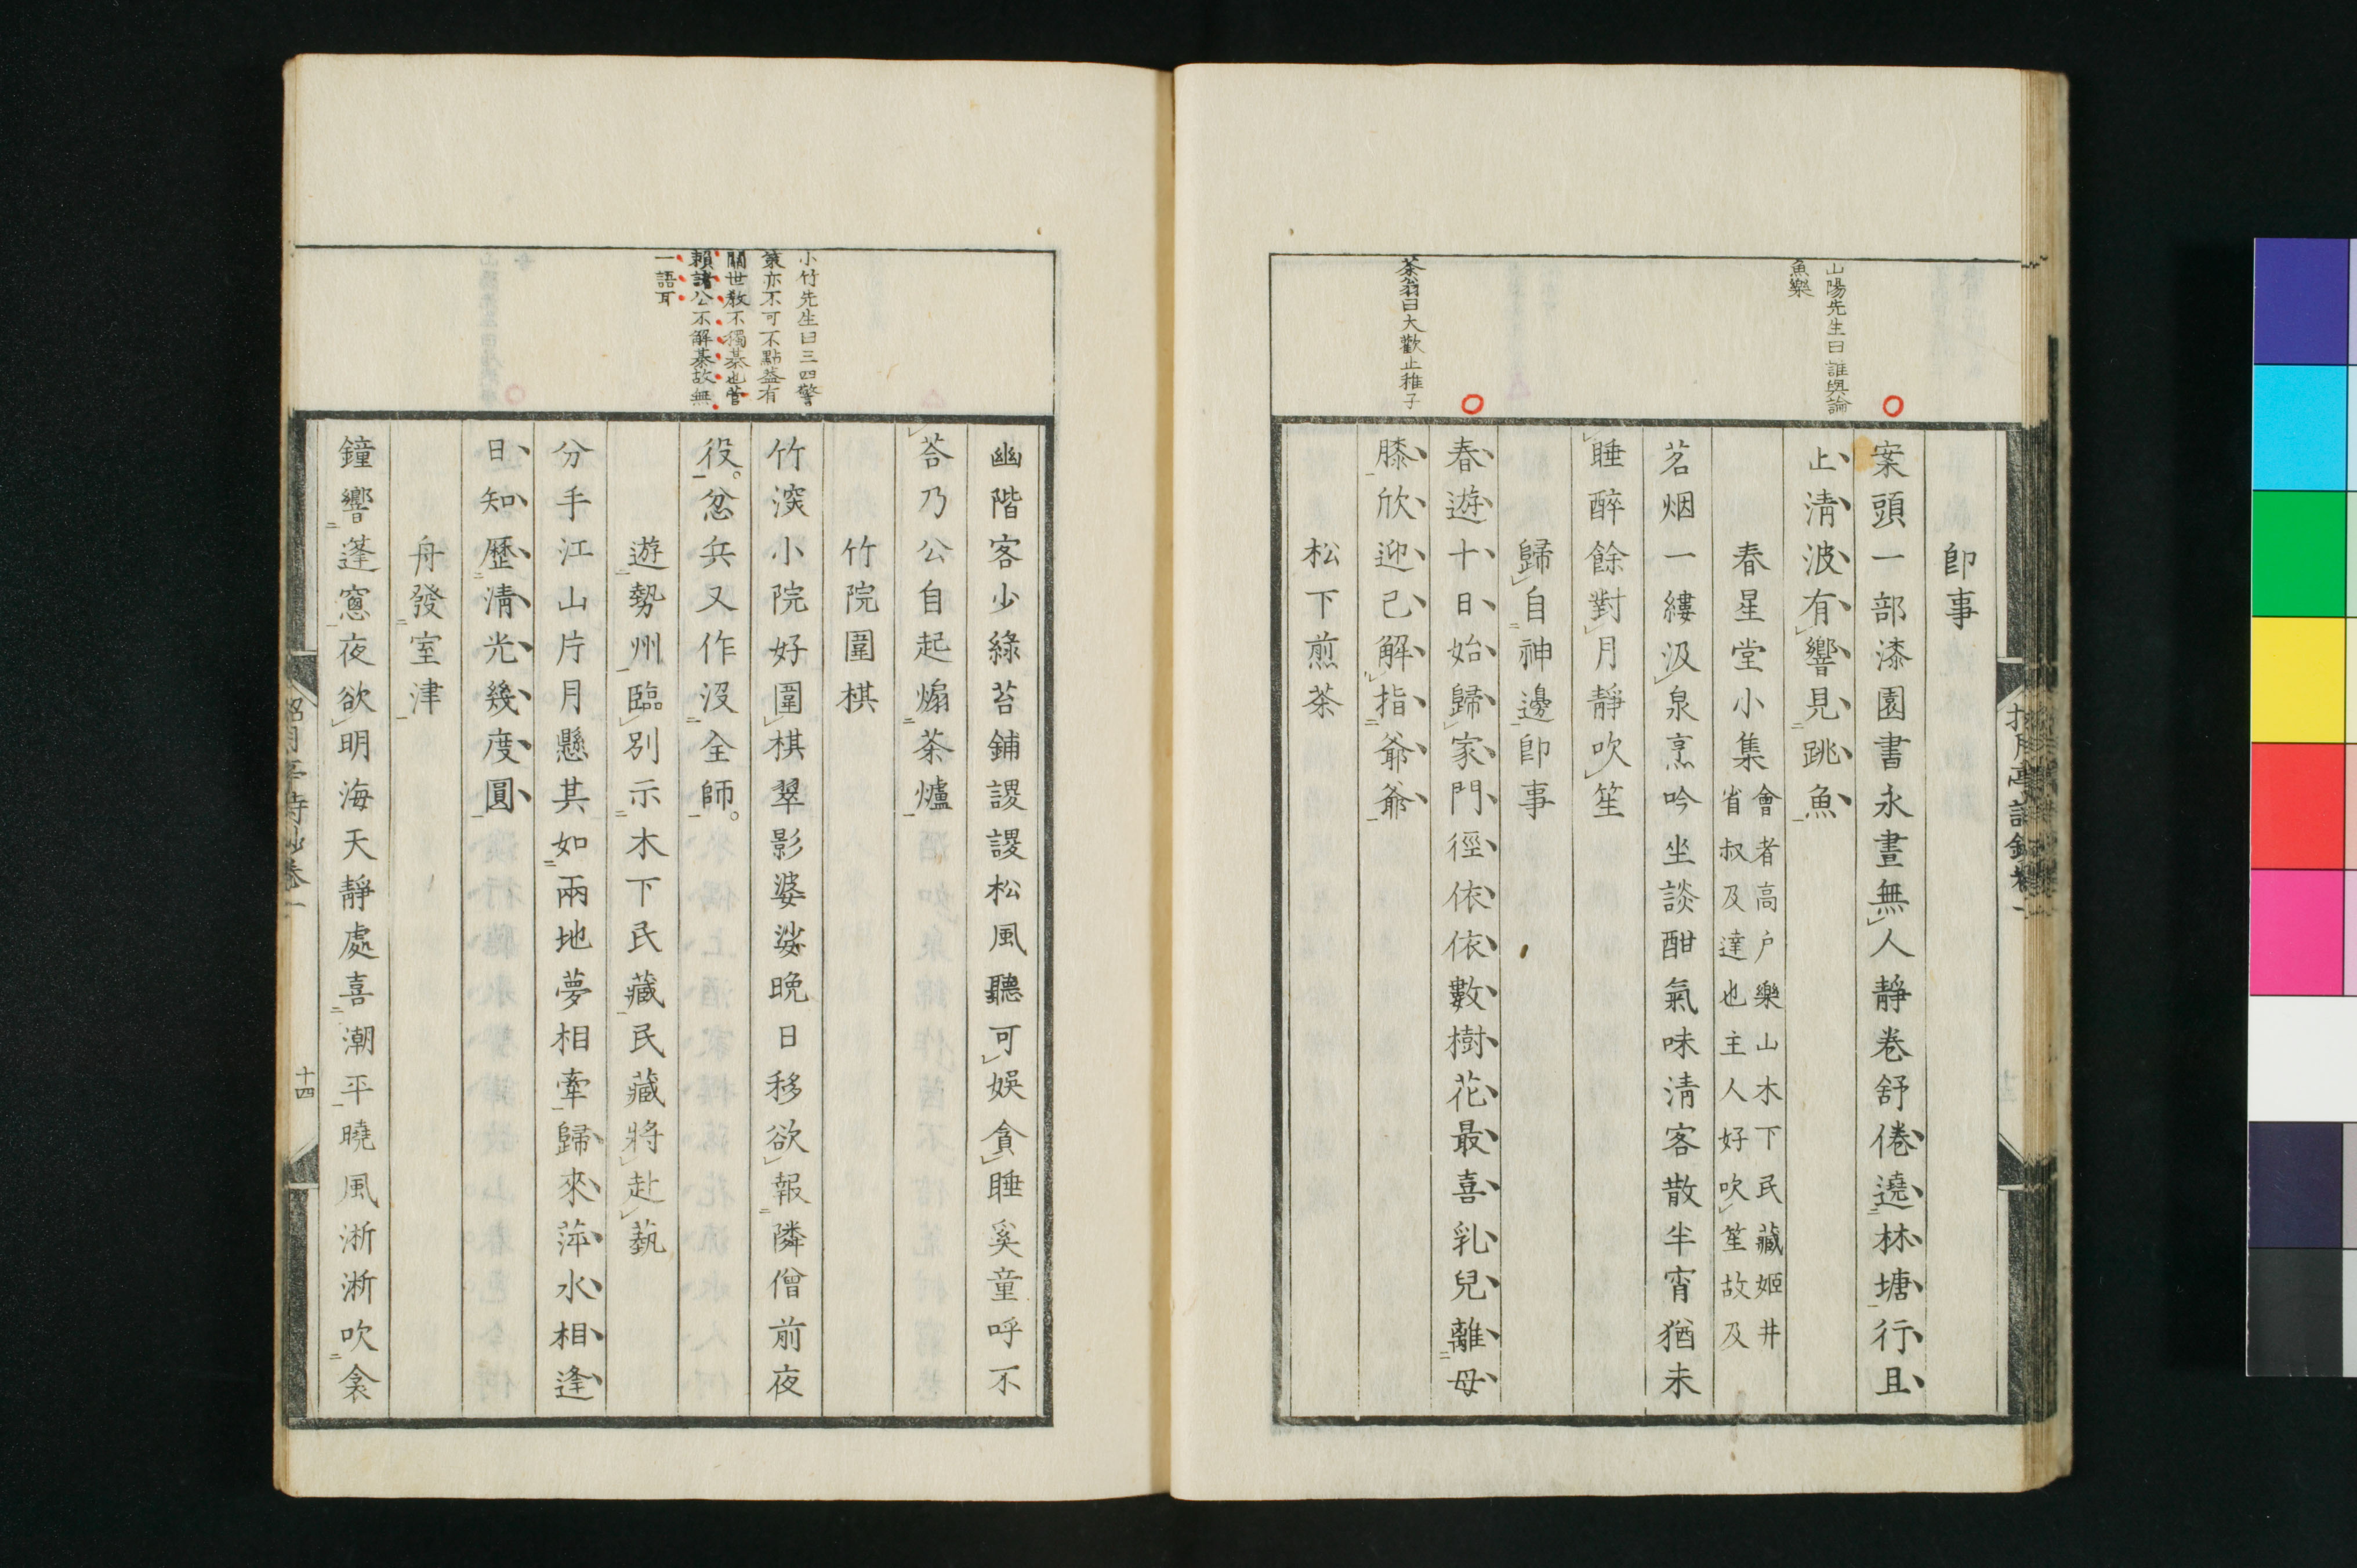 山陽先生曰誰與論
魚樂
茶翁曰大歡止稚子
即事
案頭一部漆園書永晝無人靜卷舒倦遶林塘行且
止清波有響見跳魚
春星堂小集會者高户樂山木下民藏姬井
省叔及達也主人好吹笙故及
茗烟一縷汲泉烹吟坐談酣氣味清客散半宵猶未
睡醉餘對月靜吹笙
歸自神邊即事
春遊十日始歸家門徑依依數樹花最喜乳兒離母
膝欣迎已解指爺爺
松下煎茶
小竹先生曰三四警
策亦不可不點葢有
關世教不獨棊也菅
賴諸公不解棊故無
一語耳
幽階客少綠苔鋪謖謖松風聽可娛貪睡奚童呼不
荅乃公自起煽茶爐
竹院圍棋
竹深小院好圍棋翠影婆娑晚日移欲報隣僧前夜
役忿兵又作沒全師
遊勢州臨別示木下民藏民藏將赴藝
分手江山片月懸其如兩地夢相牽歸來萍水相逢
日知歷清光幾度圓
舟發室津
鐘響蓬窻夜欲明海天靜處喜潮平曉風淅淅吹衾
招月亭詩鈔卷一
十四